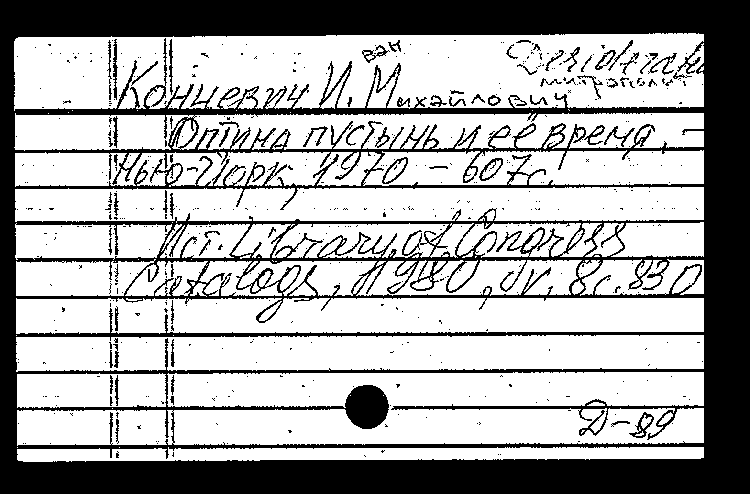 Desiderata
ван
митрополит
Концевич И. Михайлович
Оптина пустынь и её время. –
Нью-Йорк, 1970. – 607с.
Ист. Library of Congress
Catalogs, 1980, v. 8 с. 830
Д-89